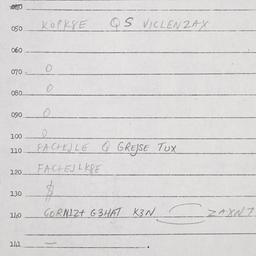 050 KOPKYE QS VICLENZAX
060
070 O
080 O
090 O
100 O
110 PACHKJLE Q GREJSE TUX
120 FACHEJLKPE
130
140 GORNIZT G3HAT K3N ZAXN7
141 —